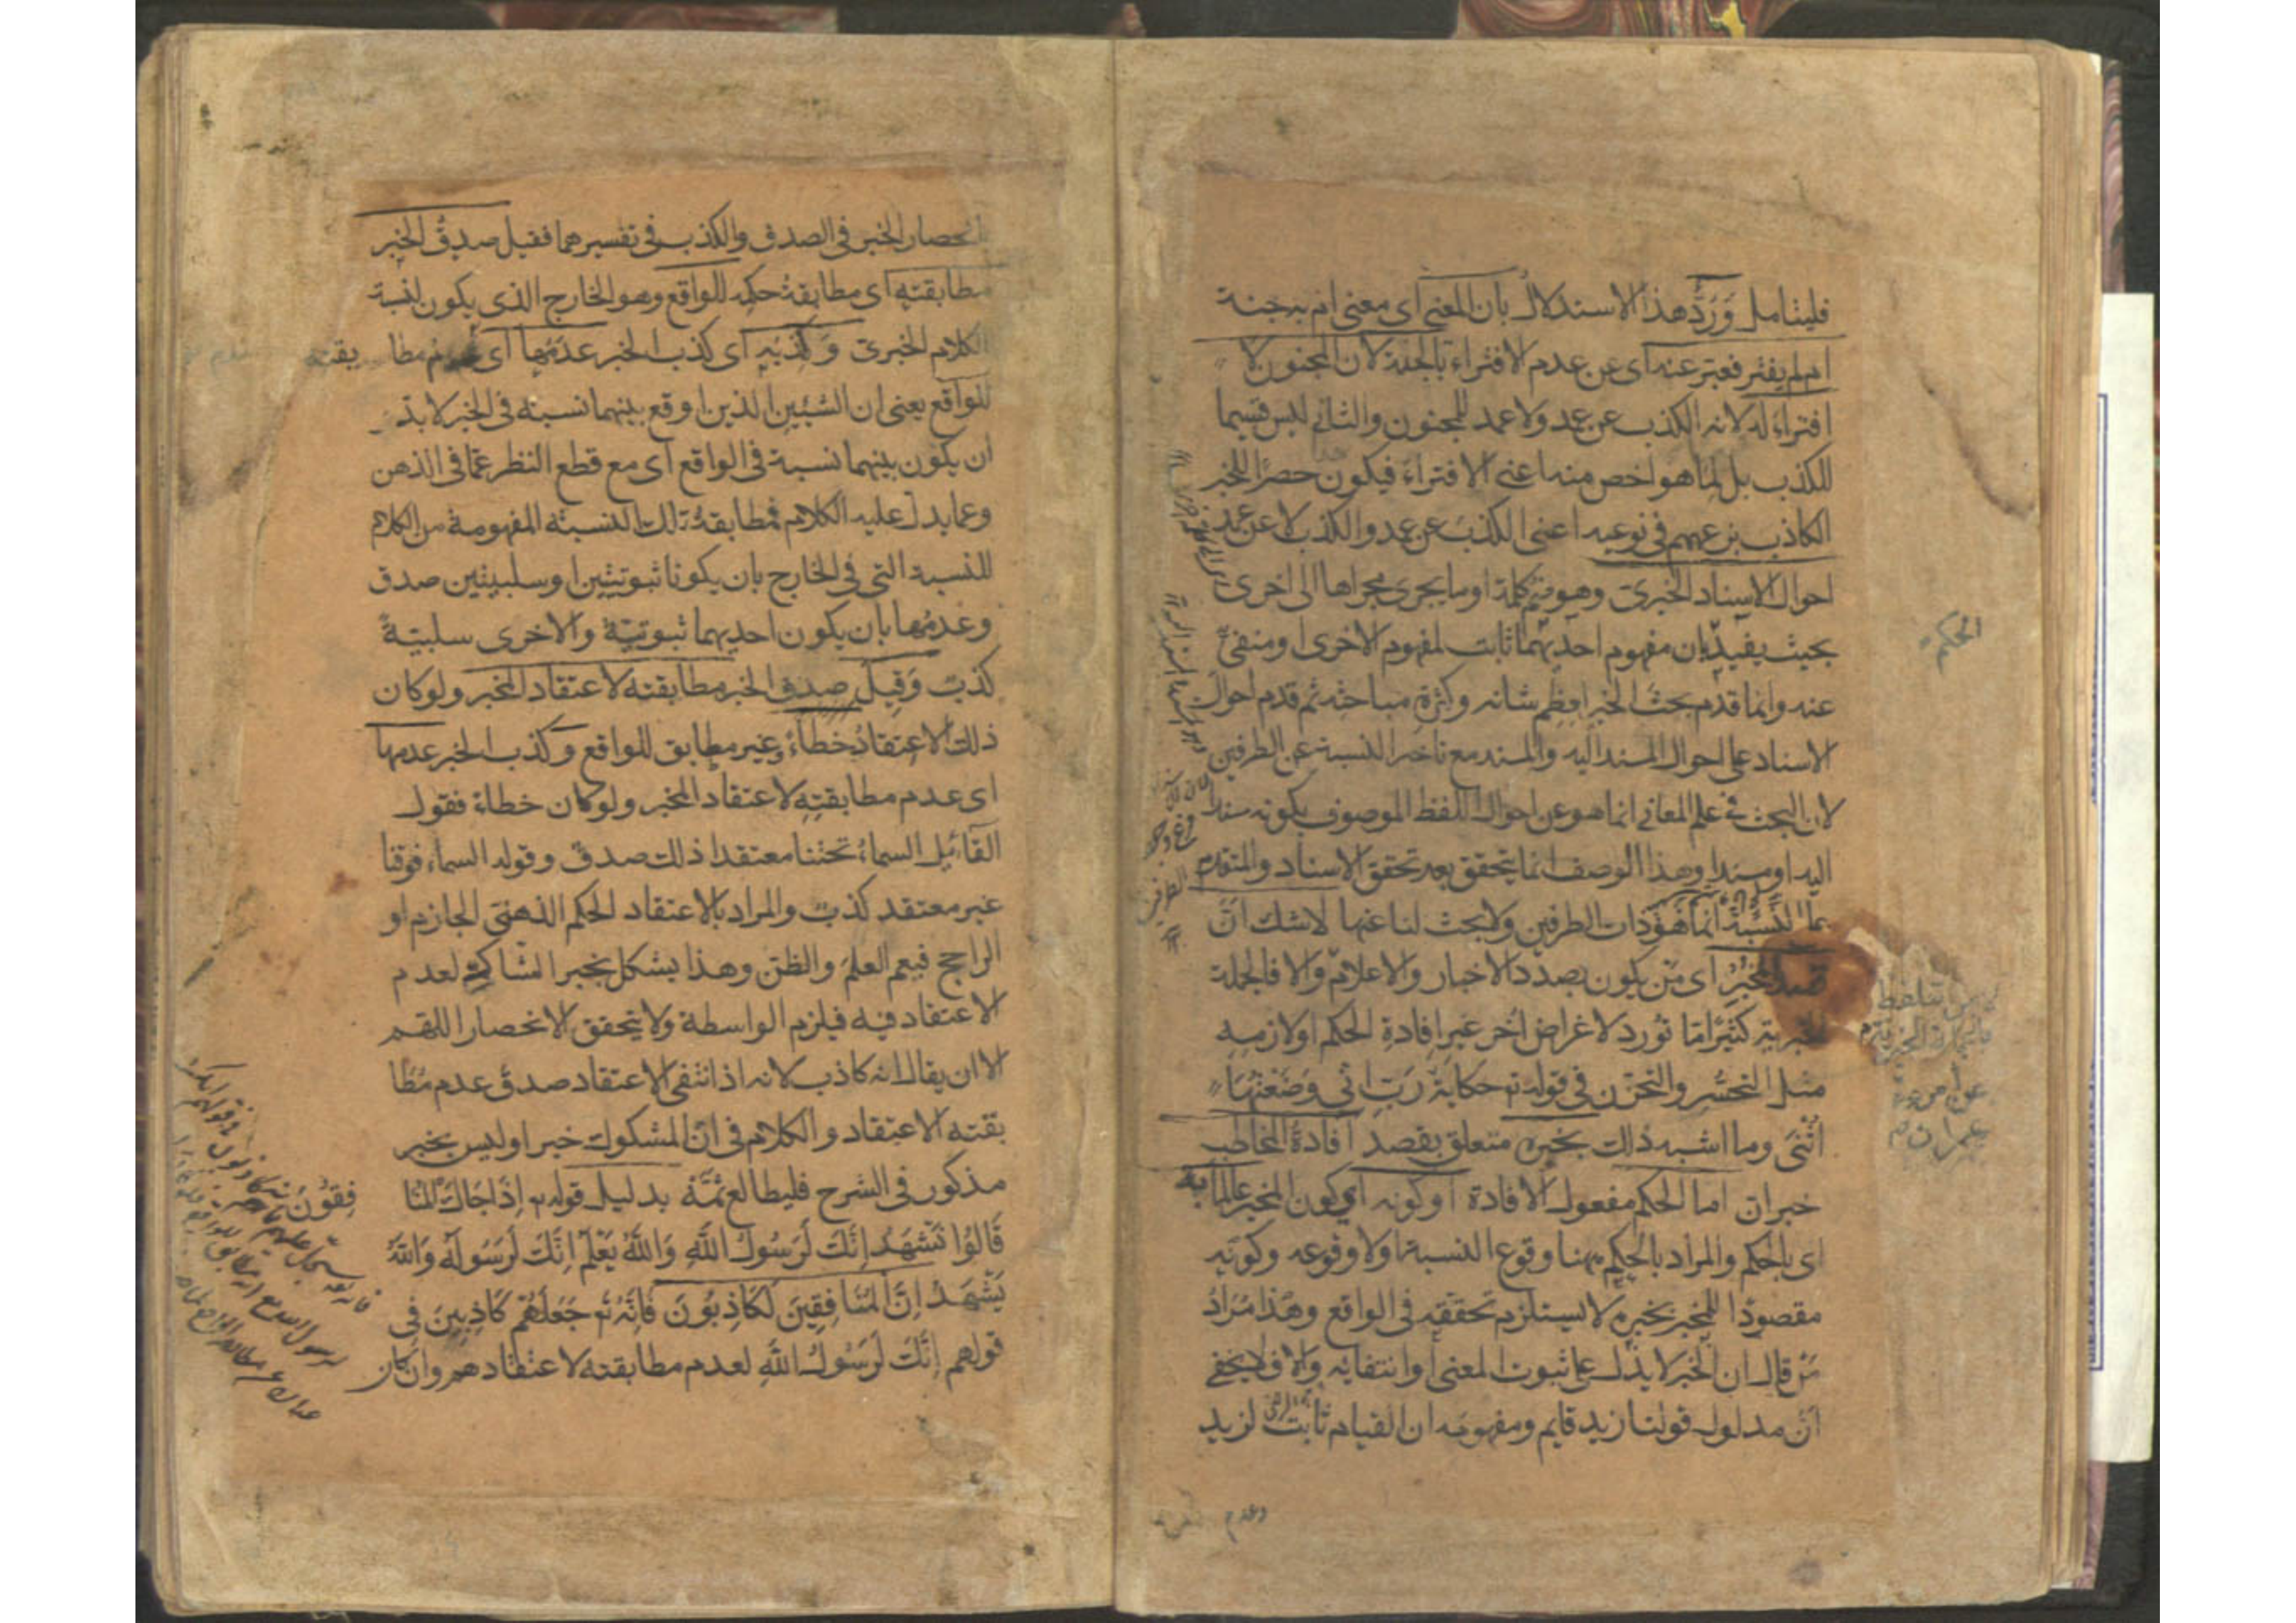 فليتامل وَرُدَّ هذا الاستدلال بان المعنى اى معنى ام به جنة
ام لم يفتر فعبّر عنه اى عن عدم الافتراء بالجنة لان المجنون لا
افتراء له لانه الكذب عن عمد ولا عمد للمجنون والثانى ليس قسيما
للكذب بل لما هو اخص منه اعنى الافتراء فيكون حصرا للخبر
الكاذب بزعمهم فى نوعيه اعنى الكذب عن عمد والكذب لا عن عمد
احوال الاسناد الخبرى وهو ضم كلمة او ما يجرى مجراها الى اخرى
بحيث يفيد بان مفهوم احديهما ثابت لمفهوم الاخرى او منفىّ
عنه وانما قدم بحث الخبر لعظم شانه وكثرة مباحثه ثم قدم احوال
الاسناد على احوال المسند اليه والمسند مع تاخر النسبة عن الطرفين
لان البحث فى علم المعانى انما هو عن احوال اللفظ الموصوف بكونه مسندا
اليه او مسندا وهذا الوصف انما يتحقق بعد تحقق الاسناد والمتقدم
على النسبة انما هو ذات الطرفين ولا بحث لنا عنها لا شك انّ
قصد المخبر اى من يكون بصدد الاخبار والاعلام والا فالجملة
الخبرية كثيرًا ما تورد لاغراض أُخر غير افادة الحكم او لازمه
مثل التحسّر والتحزن فى قوله تع حكاية رَبِّ انّى وَضَعْتُهَا
اُنْثَى وما اشبه ذلك بخبره متعلق بقصد افادة المخاطب
خبر ان اما الحكم مفعول الافادة او كونه اى كون المخبر عالما به
اى بالحكم والمراد بالحكم ههنا وقوع النسبة او لا وقوعه وكونه
مقصودًا للمخبر بخبره لا يستلزم تحققه فى الواقع وهذا مراد
من قال ان الخبر لا يدل على ثبوت المعنى او انتفائه والا فلا يخفى
انّ مدلول قولنا زيد قايم ومفهومه ان القيام ثابت لزيد
الحكم
عمران
وعدم
انحصار الخبر فى الصدق والكذب فى تفسيرهما فقيل صدق الخبر
مطابقته اى مطابقة حكمه للواقع وهو الخارج الذى يكون لنسبة
الكلام الخبرى وَكَذِبُه اى كذب الخبر عدمها اى عدم مطا بقته
للواقع يعنى ان الشيئين الذين اوقع بينهما نسبة فى الخبر لا بد
ان يكون بينهما نسبة فى الواقع اى مع قطع النظر عما فى الذهن
وعما يدل عليه الكلام فمطابقة تلك النسبة المفهومة من الكلام
للنسبة التى فى الخارج بان يكونا ثبوتيتين او سلبيتين صدق
وعدمها بان يكون احديهما ثبوتيّة والاخرى سلبيّةً
كذبٌ وَقِيلَ صدق الخبر مطابقته لاعتقاد المخبر ولو كان
ذلك الاعتقاد خطاءً غير مطابق للواقع وكذب الخبر عدمها
اى عدم مطابقته لاعتقاد المخبر ولو كان خطاءً فقول
القائل السماء تحتنا معتقدا ذلك صدق وقوله السماء فوقنا
غير معتقد كذب والمراد بالاعتقاد الحكم الذهنى الجازم او
الراجح فيعم العلم والظن وهذا يشكل بخبر الشاك لعدم
الاعتقاد فيه فيلزم الواسطة ولا يتحقق الانحصار اللهم
الا ان يقال انه كاذب لانه اذا انتفى الاعتقاد صدق عدم مُطا
بقته الاعتقاد والكلام فى انّ المشكوك خبر او ليس بخبر
مذكور فى الشرح فليطالع ثمّة بدليل قوله تع إِذَا جَاءَكَ الْمُنَا
فِقُوْنَ
قَالُوا نَشْهَدُ إِنَّكَ لَرَسُولُ اللَّهِ وَاللَّهُ يَعْلَمُ إِنَّكَ لَرَسُولُهُ وَاللَّهُ
يَشْهَدُ إِنَّ الْمُنَافِقِينَ لَكَاذِبُونَ فَإِنَّهُ تع جَعَلَهُمْ كَاذِبِينَ فِى
قولهم إِنَّكَ لَرَسُولُ اللَّهِ لعدم مطابقته لاعتقادهم وان كان